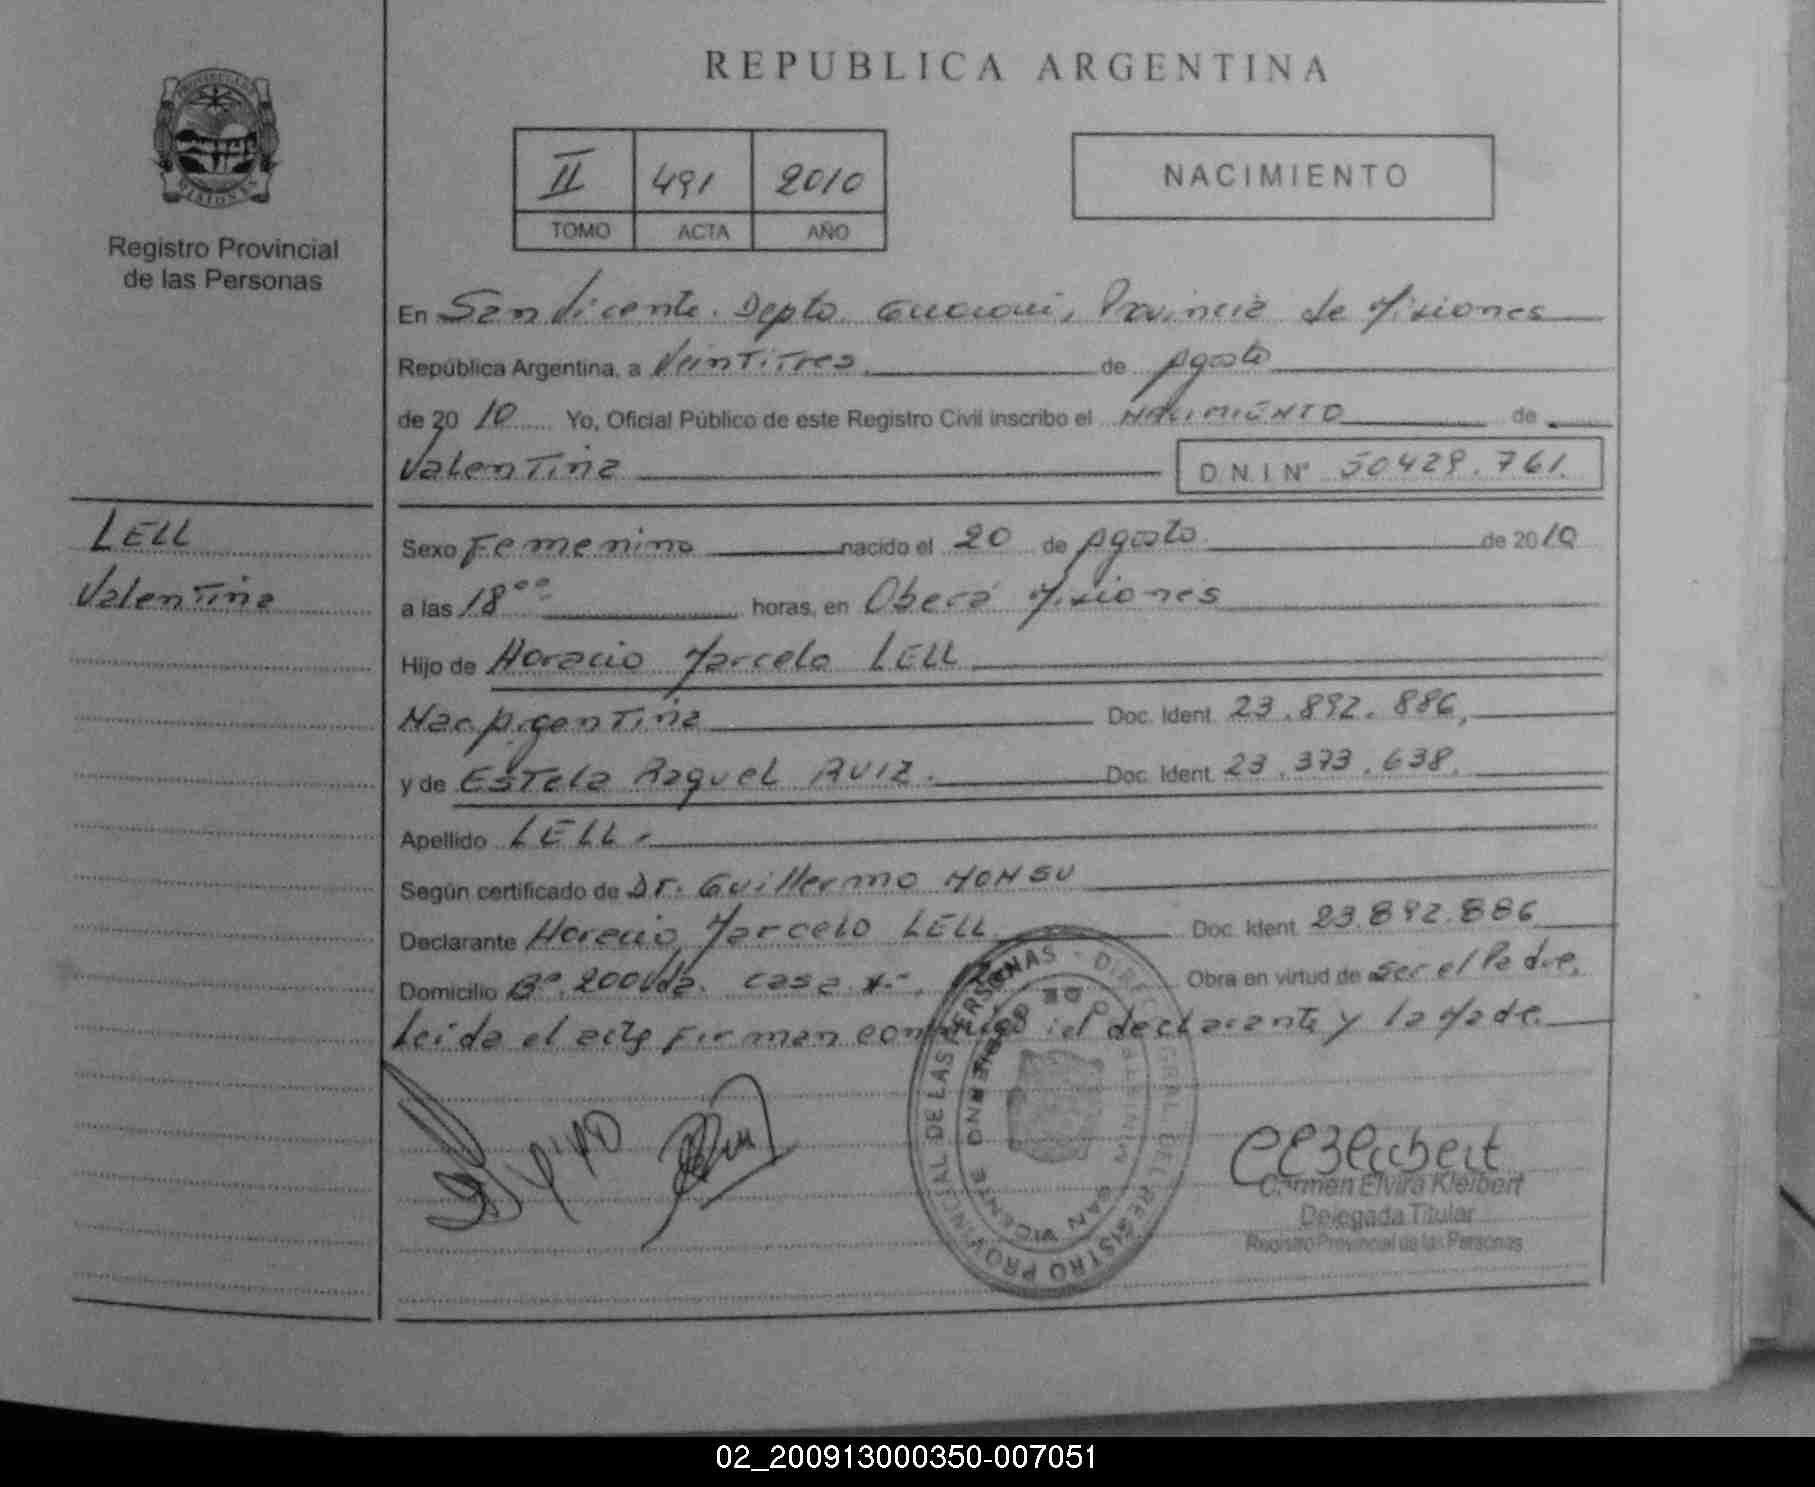 REPUBLICA ARGENTINA
Registro Provincial
de las Personas
II 491 2010
TOMO ACTA AÑO
NACIMIENTO
En San Vicente. Depto. Guaraní, Provincia de Misiones
República Argentina, a Veintitres de Agosto
de 2010 Yo, Oficial Público de este Registro Civil inscribo el NACIMIENTO de
Valentina D.N.I Nº 50429.761.
LELL
Valentina
Sexo Femenino nacido el 20 de Agosto de 2010
a las 18°° horas, en Oberá Misiones
Hijo de Horacio Marcelo LELL
Nac. Argentina Doc. Ident. 23.892.886,
y de Estela Raquel RUIZ. Doc. Ident. 23.373.638.
Apellido LELL.
Según certificado de Dr. Guillermo
Declarante Horacio Marcelo LELL Doc. Ident. 23.892.886
Domicilio Bº 200 Vda. casa Obra en virtud de ser el Padre.
Leida el acta firman conmigo el declarante y la Made.
REGISTRO PROVINCIAL DE LAS PERSONAS - DIREC GRAL DEL
SAN VICENTE
Carmen Elvira Kleibert
Delegada Titular
Registro Provincial de las Personas
02_200913000350-007051